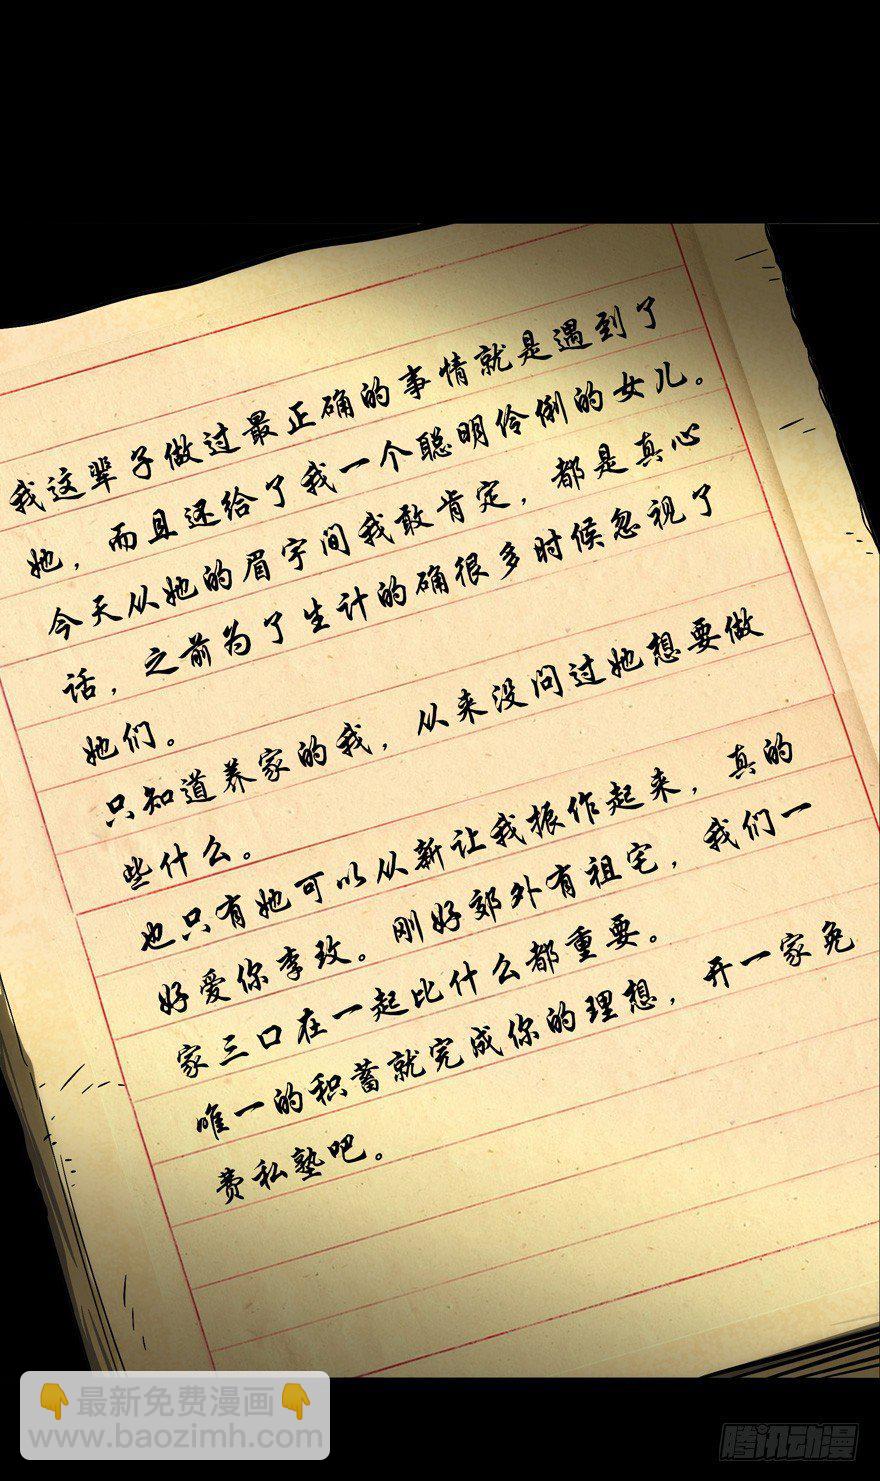 我这辈子做过最正确的事情就是遇到了
她，而且还给了我一个聪明伶俐的女儿。
今天从她的眉宇间我敢肯定，都是真心
话，之前为了生计的确很多时候忽视了
她们。
只知道养家的我，从来没问过她想要做
些什么。
也只有她可以从新让我振作起来，真的
好爱你李玫。刚好郊外有祖宅，我们一
家三口在一起比什么都重要。
唯一的积蓄就完成你的理想，开一家免
费私塾吧。
👇最新免费漫画👇
www.baozimh.com
腾讯动漫